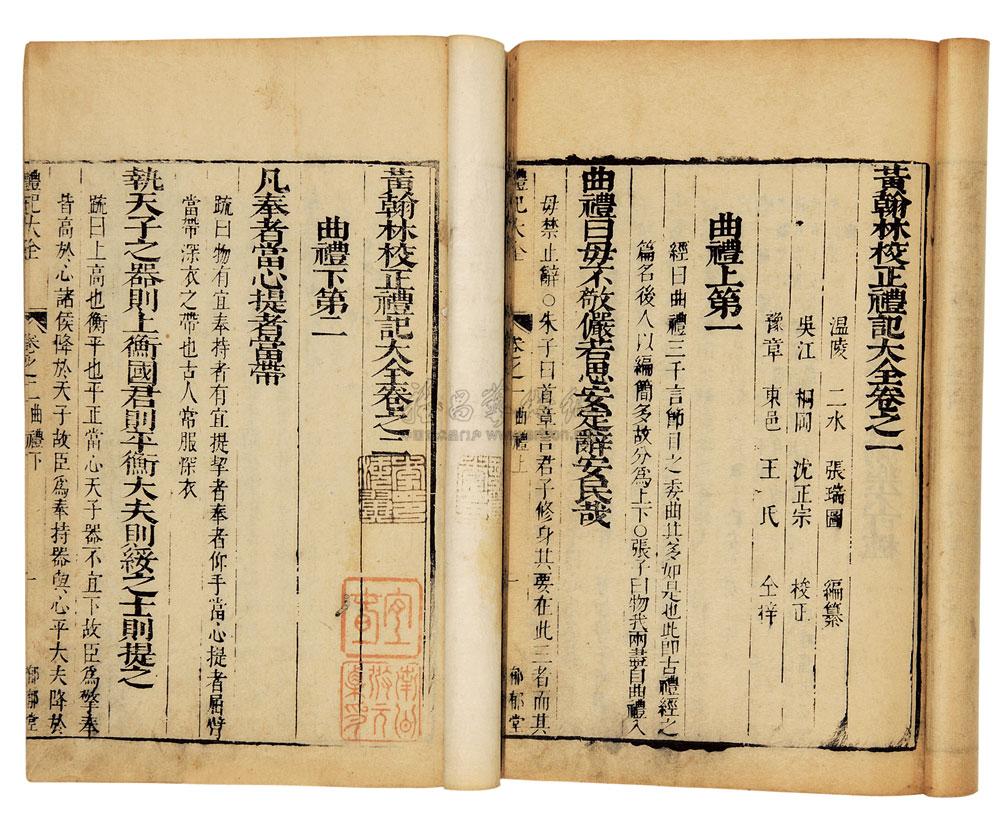 黃翰林校正禮記大全卷之一
溫陵 二水 張瑞圖 編纂
吳江 桐岡 沈正宗 校正
豫章 東邑 王氏 仝梓
曲禮上第一
經曰曲禮三千言節目之委曲其多如是也此即古禮經之
篇名後人以編簡多故分為上下○張子曰物我兩盡自曲禮入
曲禮曰毋不敬儼若思安定辭安民哉
毋禁止辭○朱子曰首章言君子修身其要在此三者而其
禮記大全 卷之一 曲禮上 一 郁郁堂
黃翰林校正禮記大全卷之二
曲禮下第二
凡奉者當心提者當帶
疏曰物有宜奉持者有宜提挈者奉者仰手當心提者屈臂
當帶深衣之帶也古人常服深衣
執天子之器則上衡國君則平衡大夫則綏之士則提之
疏曰上高也衡平也平正當心天子器不宜下故臣爲擎奉
皆高於心諸侯降於天子故臣爲奉持器與心平大夫降於
禮記大全 卷之二 曲禮下 一 郁郁堂